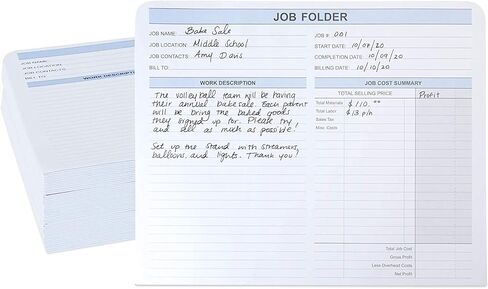 JOB FOLDER
JOB NAME: Bake Sale
JOB LOCATION: Middle School
JOB CONTACTS: Amy Davis
BILL TO:
JOB #: 001
START DATE: 10/08/20
COMPLETION DATE: 10/09/20
BILLING DATE: 10/10/20
WORK DESCRIPTION
The volleyball team will be having
their annual bake sale. Each parent
will be bring the baked goods
they signed up for. Please try
and sell as much as possible!
Set up the stand with streamers,
balloons, and lights. Thank you!
JOB COST SUMMARY
TOTAL SELLING PRICE
Profit
Total Materials $110.⁰⁰
Total Labor $13 p/h
Sales Tax
Misc. Costs
Total Job Cost
Gross Profit
Less Overhead Costs
Net Profit
JOB NAME:
JOB LOCATION:
JOB CONTACTS:
BILL TO:
WORK DESCRIPT